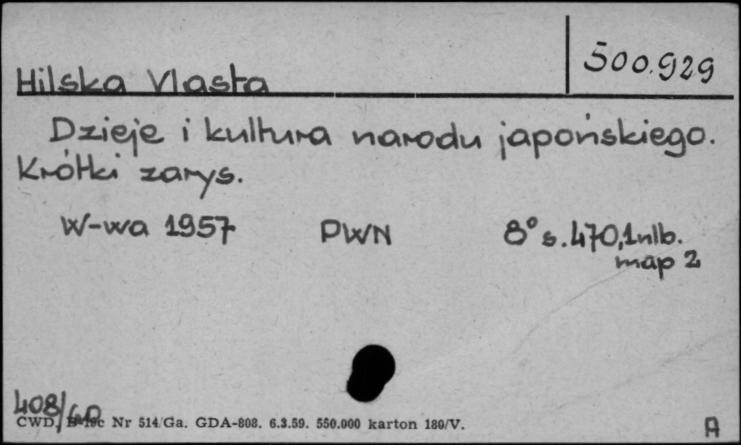 500.929
Hilska Vlasta
Dzieje i kultura narodu japońskiego.
Krótki zarys.
W-wa 1957 PWN 8° s.470,1nlb.
map 2
408/60
CWD. Nr 514/Ga. GDA-808. 6.3.59. 550.000 karton 180/V.
A